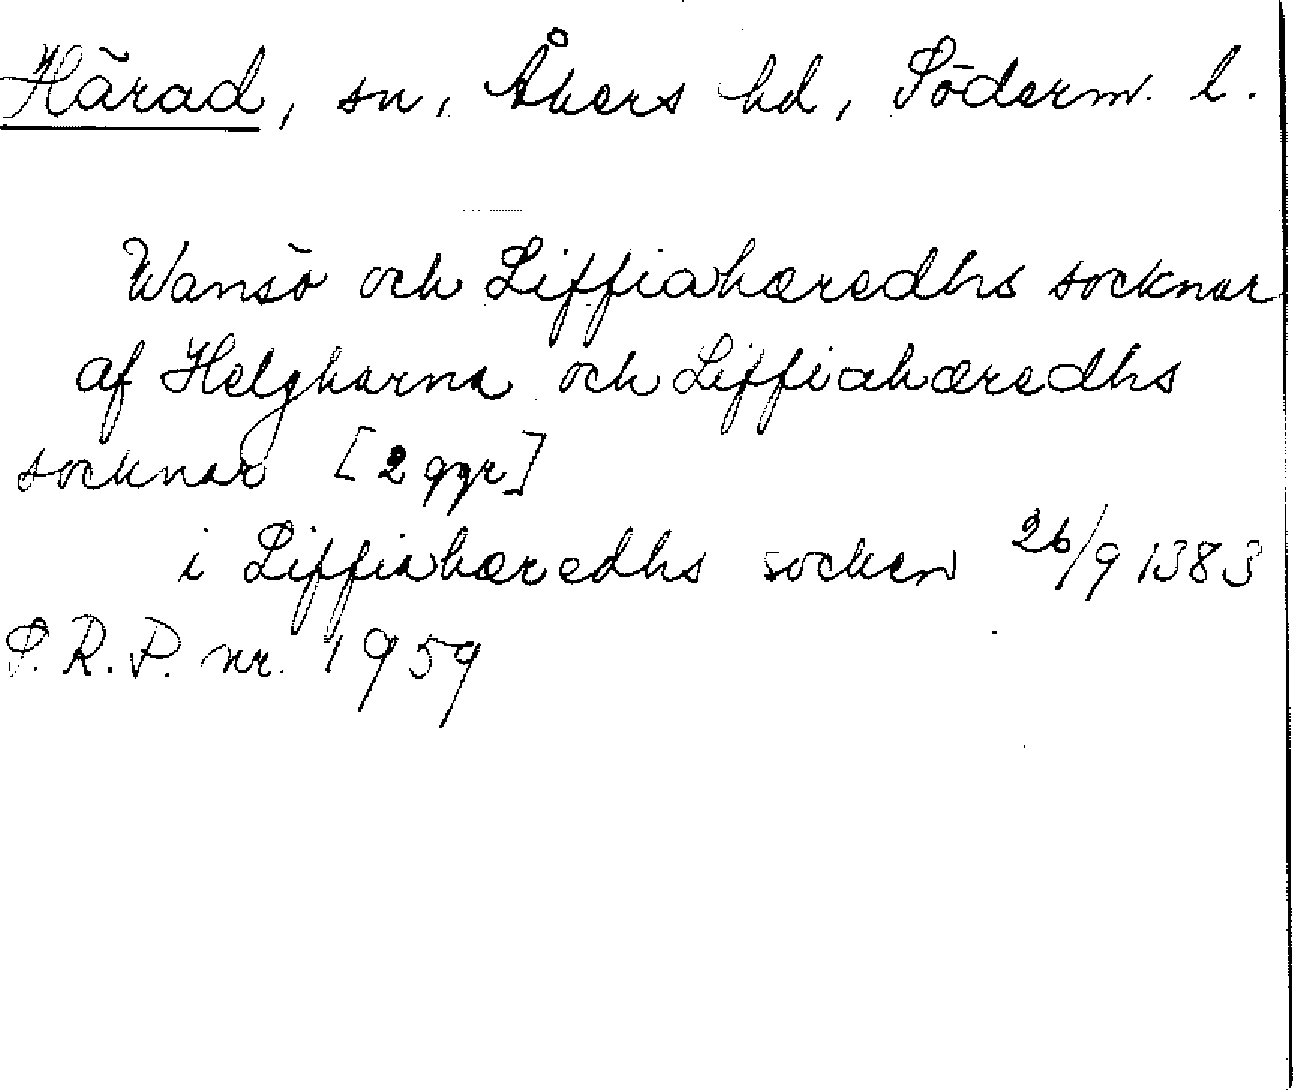 Härad, sn, Åkers hd, Söderm. l.
Wansö och Liffiahæredhs socknar
af Helgharna och Liffiahæredhs
socknar [2 ggr]
i Liffiahæredhs socken 26/9 1383
S.R.P. nr. 1959